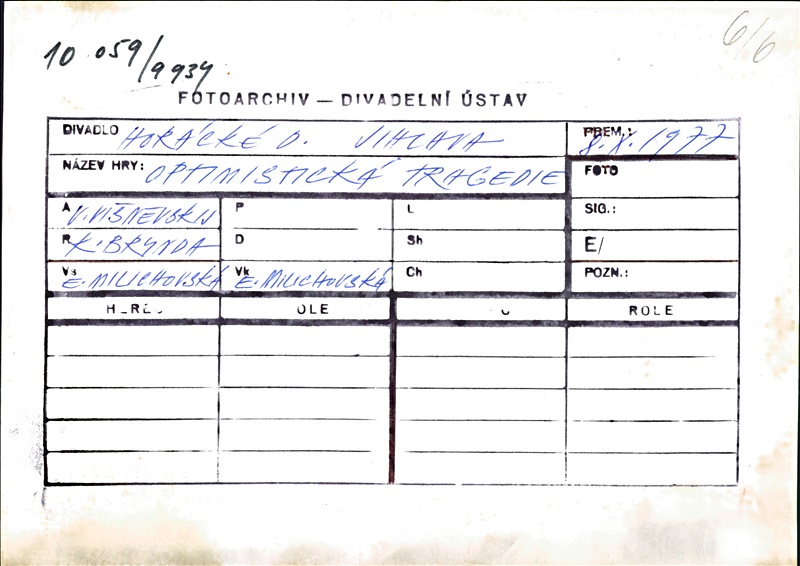 6/6
10 059/9934
FOTOARCHIV — DIVADELNÍ ÚSTAV
DIVADLO HORÁCKÉ D. JIHLAVA PREM.: 8.X.1977
NÁZEV HRY: OPTIMISTICKÁ TRAGEDIE FOTO
A V. VIŠNEVSKIJ P L SIG.:
R K. BRYNDA D Sh E/
Vs E. MILICHOVSKÁ Vk E. MILICHOVSKÁ Ch POZN.:
HEREC OLE ROLE